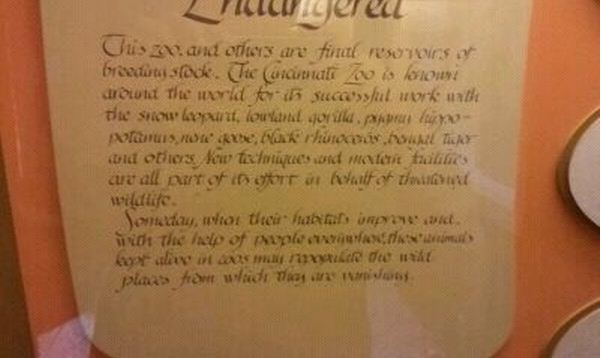 Endangered
This zoo, and others are final reservoirs of
breeding stock. The Cincinnati Zoo is known
around the world for its successful work with
the snow leopard, lowland gorilla, pygmy hippo-
potamus, nene goose, black rhinoceros, bengal tiger
and others. New techniques and modern facilities
are all part of its effort in behalf of threatened
wildlife.
Someday, when their habitats improve and
with the help of people everywhere, these animals
kept alive in zoos may repopulate the wild
places from which they are vanishing.